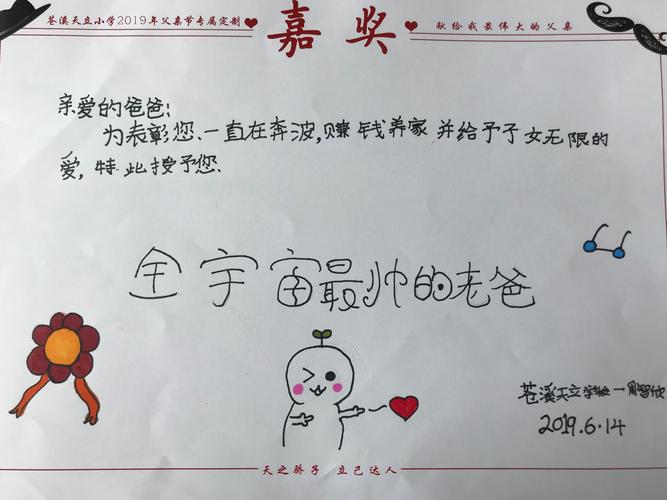 苍溪天立小学2019年父亲节专属定制
嘉奖
献给我最伟大的父亲
亲爱的爸爸:
为表彰您、一直在奔波,赚钱养家并给予子女无限的
爱,特此授予您、
全宇宙最帅的老爸
苍溪天立学校一周智欣
2019.6.14
天之骄子 立己达人